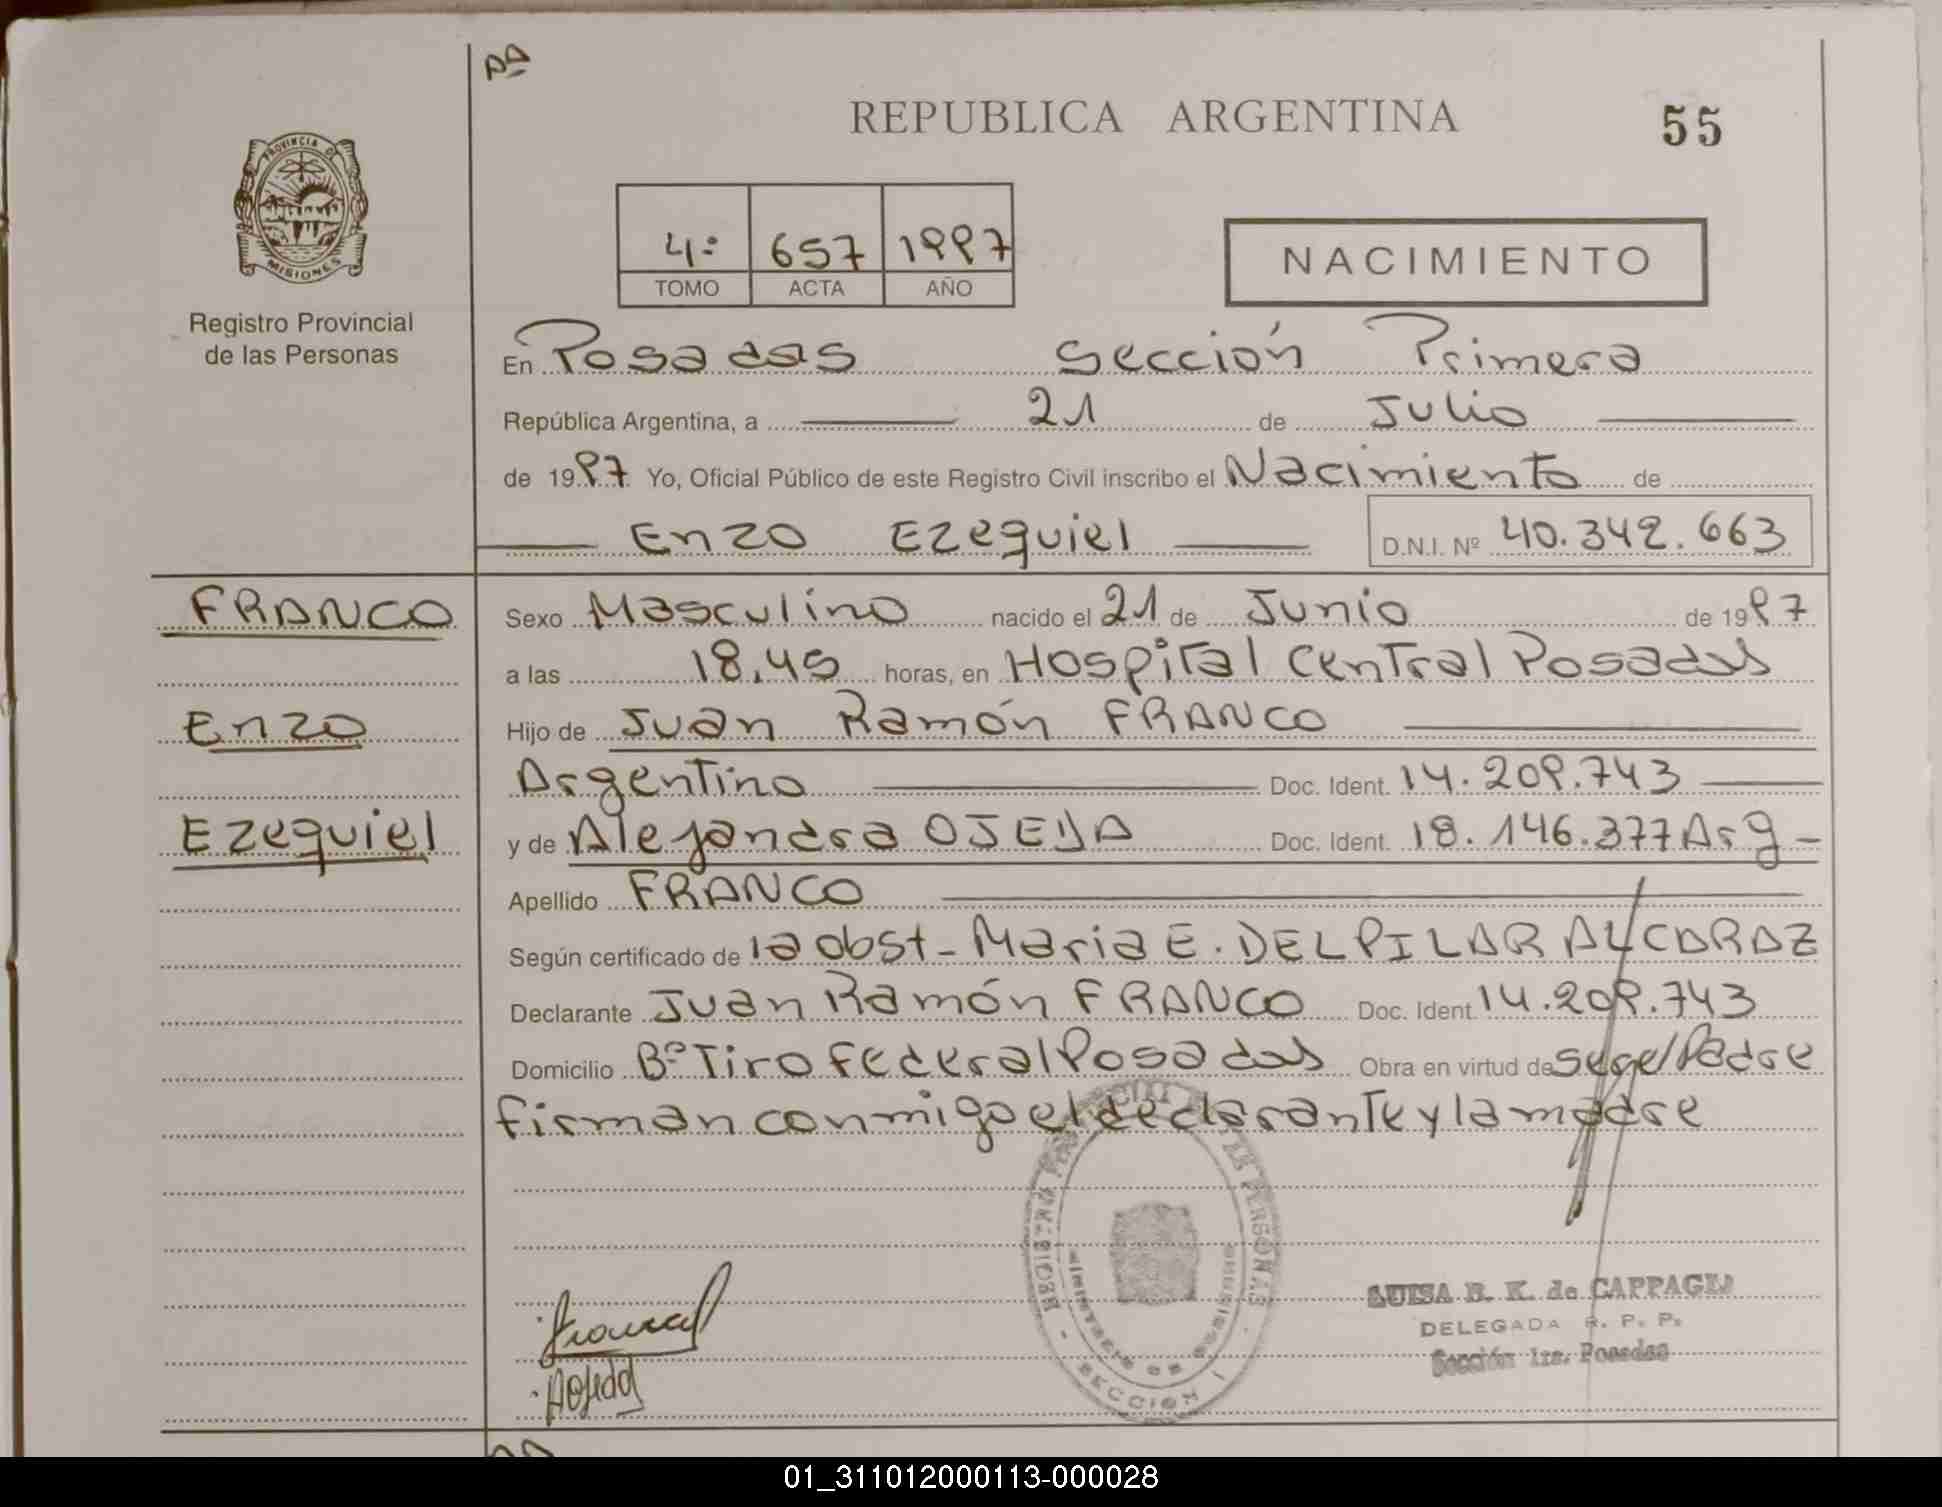 REPUBLICA ARGENTINA
55
PROVINCIA DE
MISIONES
Registro Provincial
de las Personas
4º 657 1997
TOMO ACTA AÑO
NACIMIENTO
En Posadas Sección Primera
República Argentina, a 21 de Julio
de 1997 Yo, Oficial Público de este Registro Civil inscribo el Nacimiento de
Enzo Ezequiel D.N.I. Nº 40.342.663
FRANCO
Enzo
Ezequiel
Sexo Masculino nacido el 21 de Junio de 1997
a las 18,45 horas, en Hospital Central Posadas
Hijo de Juan Ramón FRANCO
Argentino Doc. Ident. 14.209.743
y de Alejandra OJEDA Doc. Ident. 18.146.377 Arg
Apellido FRANCO
Según certificado de la obst- Maria E. DEL PILAR ALCARAZ
Declarante Juan Ramón FRANCO Doc. Ident. 14.209.743
Domicilio Bº Tiro Federal Posadas Obra en virtud de ser el Padre
firman conmigo el declarante y la madre
LUISA B. K. de
DELEGADA R. P. P.
Sección 1ra. Posadas
SECCION 1
01_311012000113-000028